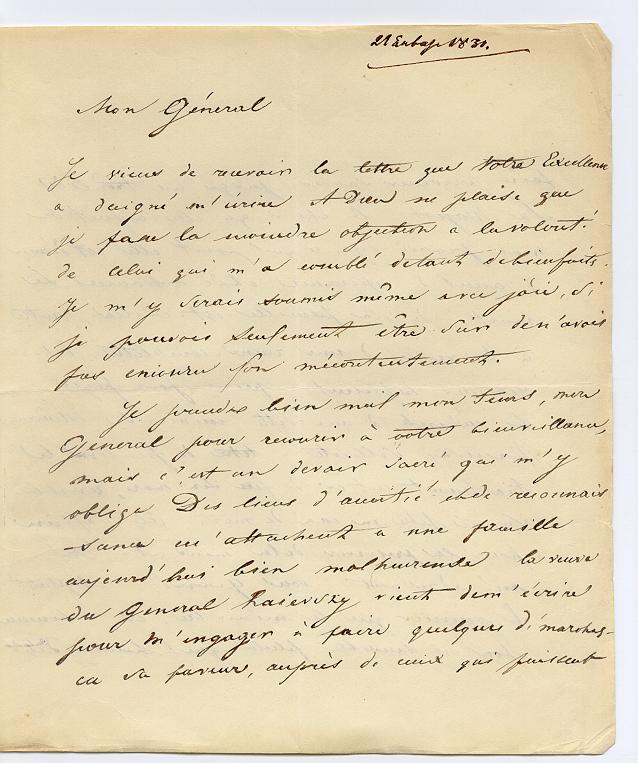 21 Января 1830.
Mon Général
Je viens de recevoir la lettre que Votre Excellence
a daigné m'écrire A Dieu ne plaise que
je fasse la moindre objection a la volonté
de celui qui m'a comblé de tant de bienfaits.
Je m'y serais soumis même avec joie, si
je pouvois seulement être sûr de n'avoir
pas encouru son mécontentement.
Je prends bien mal mon tems, mon
Général pour recourir à votre bienveillance,
mais c'est un devoir sacré qui m'y
oblige Des liens d'amitié et de reconnais
-sance m'attachent a une famille
aujourd'hui bien malheureuse la veuve
du Général Raievsky vient de m'écrire
pour m'engager à faire quelques démarches
en sa faveur, auprès de ceux qui puissent